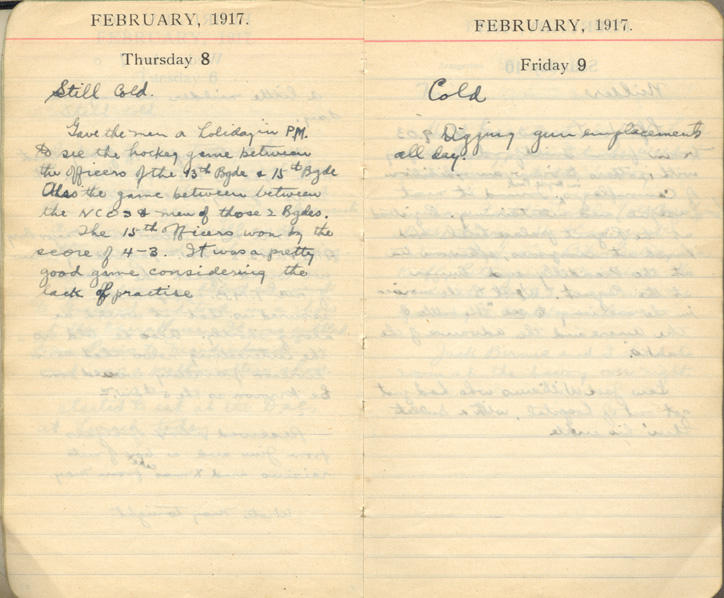 FEBRUARY, 1917.
Thursday 8
Still Cold.
Gave the men a holiday in P.M.
to see the hockey game between
the officers of the 13th Bgde & 15th Bgde
Also the game between between
the NCOs & men of those 2 Bgdes.
The 15th Officers won by the
score of 4-3. It was a pretty
good game considering the
lack of practise
FEBRUARY, 1917.
Friday 9
Cold
Digging gun emplacements
all day.